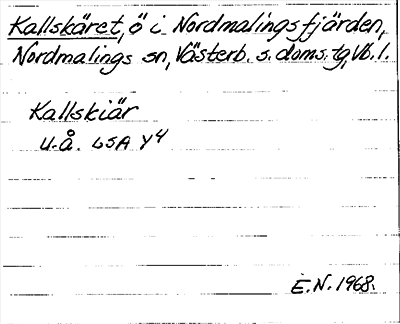 Kallskäret, ö i Nordmalingsfjärden,
Nordmalings sn, Västerb. s. doms. tg, Vb. l.
Kallskiär
u. å. LSA Y4
E.N. 1968.